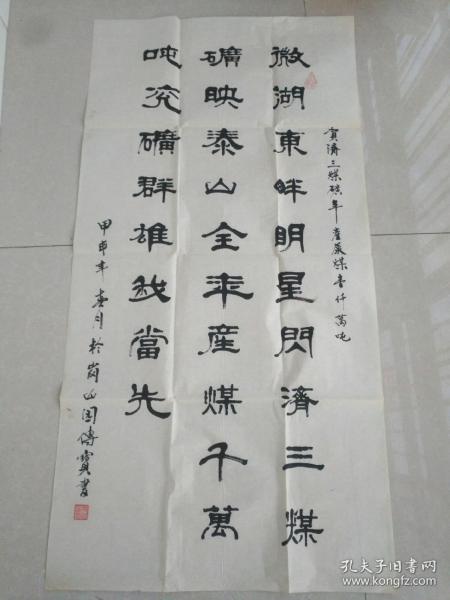 賀濟三煤礦年產原煤壹仟萬吨
微湖東畔明星閃濟三煤
礦映泰山全年産煤千萬
吨兖礦群雄我當先
甲申年春月於崗山閻傳寶書
孔夫子旧书网
www.kongfz.com